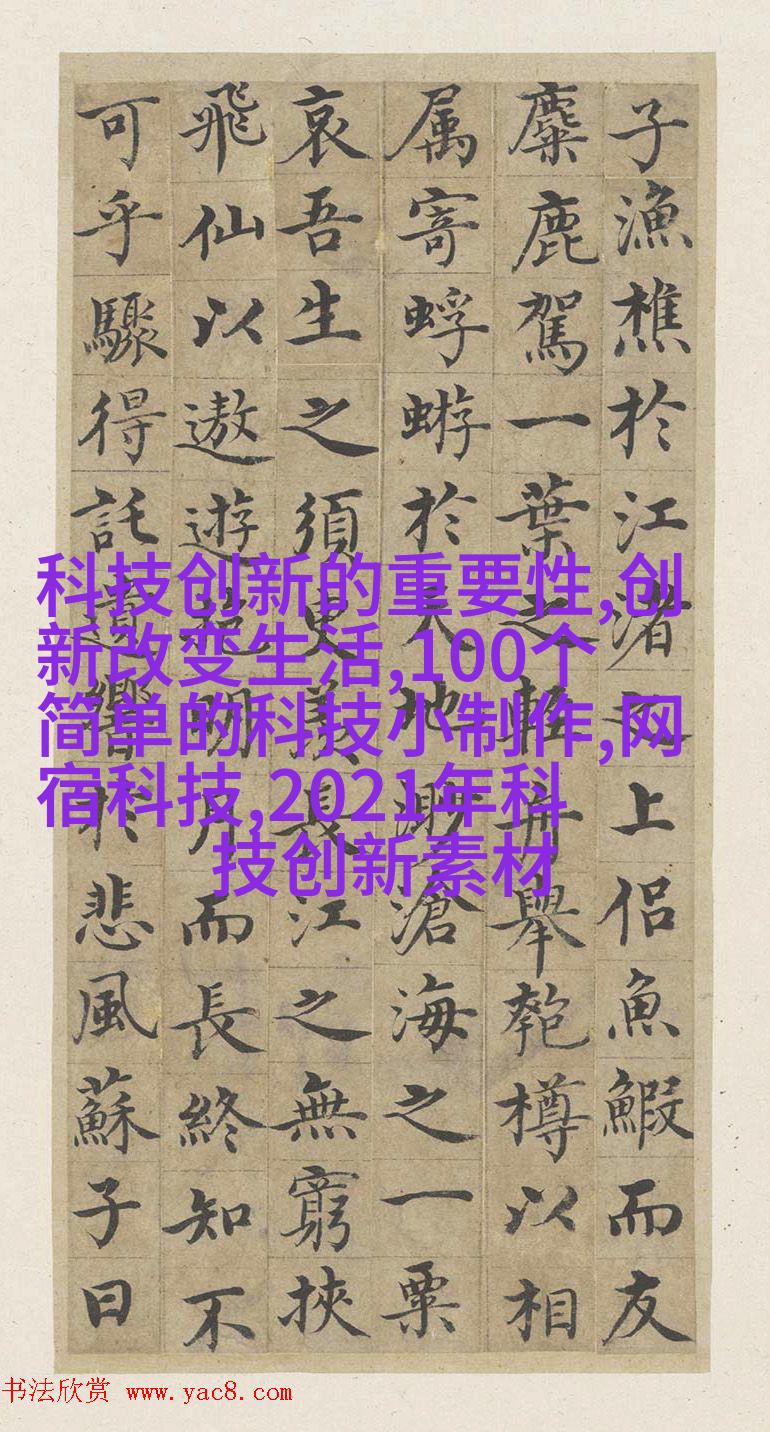 子漁樵於江渚之上侶魚鰕而友
麋鹿駕一葉之輕舟舉匏樽以相
属寄蜉蝣於天地渺滄海之一粟
哀吾生之須臾羨長江之無窮挾
飛仙以遨遊抱明月而長終知不
可乎驟得託遺響於悲風蘇子曰
科技创新的重要性,创
新改变生活,100个
简单的科技小制作,网
宿科技,2021年科
技创新素材
书法欣赏 www.yac8.com